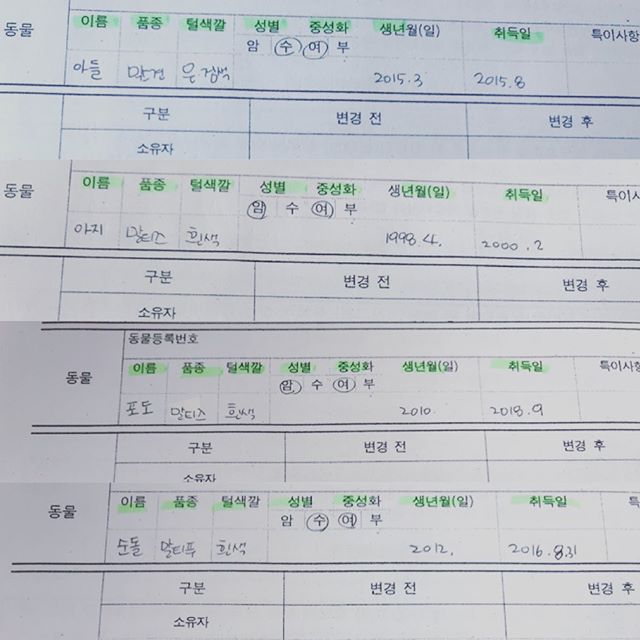 동물 이름 품종 털색깔 성별 중성화 생년월(일) 취득일 특이사항
암 수 여 부
아들 말건 은 검백 2015.3 2015.8
구분 변경 전 변경 후
소유자
동물 이름 품종 털색깔 성별 중성화 생년월(일) 취득일 특이사
암 수 여 부
아지 말티즈 흰색 1998.4. 2000.2
구분 변경 전 변경 후
소유자
동물등록번호
동물 이름 품종 털색깔 성별 중성화 생년월(일) 취득일 특이사
암 수 여 부
포도 말티즈 흰색 2010. 2018.9
구분 변경 전 변경 후
소유자
동물 이름 품종 털색깔 성별 중성화 생년월(일) 취득일 특
암 수 여 부
순돌 말티푸 흰색 2012. 2016.8.31
구분 변경 전 변경 후
소유자